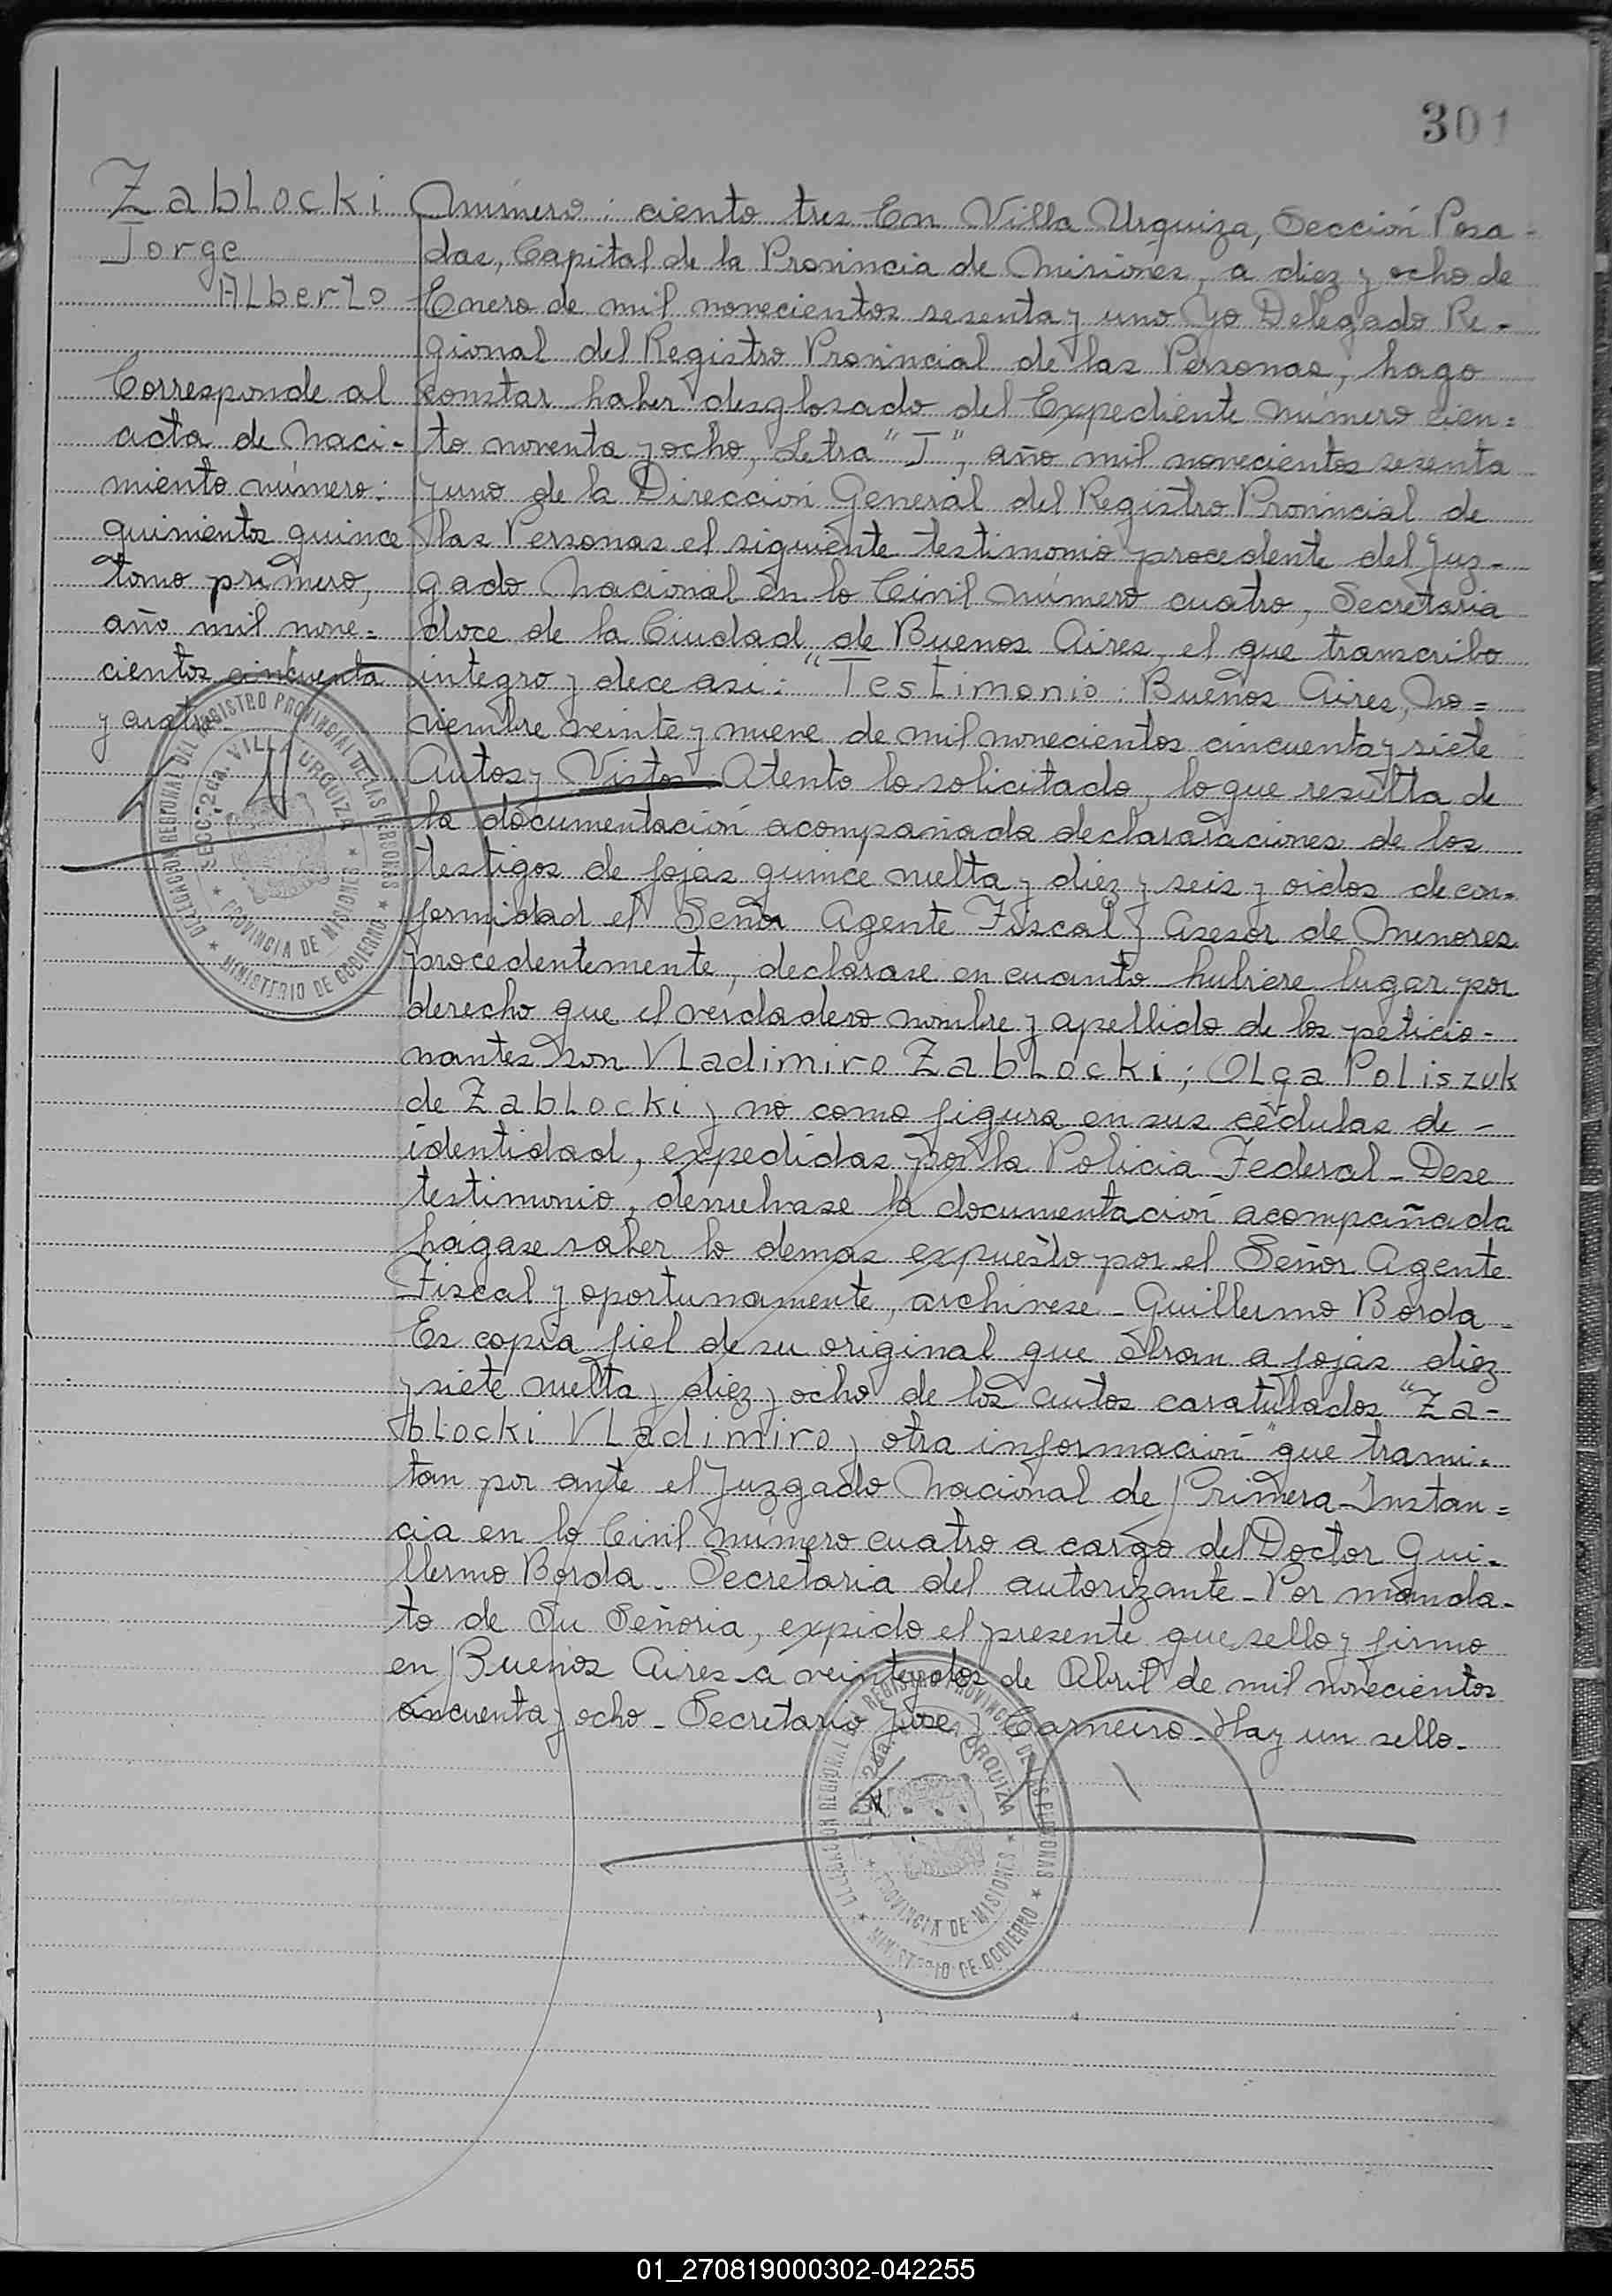 301
Zablocki
Jorge
Alberto
Corresponde al
acta de naci-
miento número:
quinientos quince
tomo primero,
año mil nove=
cientos cincuenta
y cuatro
Número: ciento tres En Villa Urquiza, Sección Posa-
das, Capital de la Provincia de Misiones, a diez y ocho de
Enero de mil novecientos sesenta y uno Yo Delegado Re-
gional del Registro Provincial de las Personas, hago
constar haber desglosado del Expediente número cien=
to noventa y ocho, Letra "J", año mil novecientos sesenta
y uno de la Dirección General del Registro Provincial de
las Personas el siguiente testimonio procedente del Juz-
gado Nacional en lo Civil número cuatro, Secretaria
doce de la Ciudad de Buenos Aires, el que transcribo
integro y dece asi: "Testimonio: Buenos Aires, No=
viembre veinte y nueve de mil novecientos cincuenta y siete
Autos y Vistos Atento lo solicitado, lo que resulta de
la documentación acompañada declararaciones de los
testigos de fojas quince vuelta y diez y seis y oidos de con-
formidad el Señor Agente Fiscal y Asesor de Menores
procedentemente, declarase en cuanto hubiere lugar por
derecho que el verdadero nombre y apellido de los peticio-
nantes son Vladimiro Zablocki; Olga Poliszuk
de Zablocki y no como figura en sus cédulas de -
identidad, expedidas por la Policia Federal - Dese
testimonio, devuelvase la documentación acompañada
hágase saber lo demas expuesto por el Señor Agente
Fiscal y oportunamente, archivese - Guillermo Borda -
Es copia fiel de su original que obran a fojas diez
y siete vuelta y diez y ocho de los autos caratulados "Za-
blocki Vladimiro y otra información" que trami-
tan por ante el Juzgado Nacional de Primera Instan=
cia en lo Civil número cuatro a cargo del Doctor Gui-
llermo Borda - Secretaria del autorizante - Por manda-
to de Su Señoria, expido el presente que sello y firmo
en Buenos Aires a veinteydos de Abril de mil novecientos
cincuenta y ocho - Secretario J. Carneiro - Hay un sello -
DELEGACION REGIONAL DEL REGISTRO PROVINCIAL DE LAS PERSONAS
SECC. 2da. VILLA URQUIZA
PROVINCIA DE MISIONES
MINISTERIO DE GOBIERNO
DELEGACION REGIONAL DEL REGISTRO PROVINCIAL DE LAS PERSONAS
SECC. 2da. VILLA URQUIZA
PROVINCIA DE MISIONES
MINISTERIO DE GOBIERNO
01_270819000302-042255